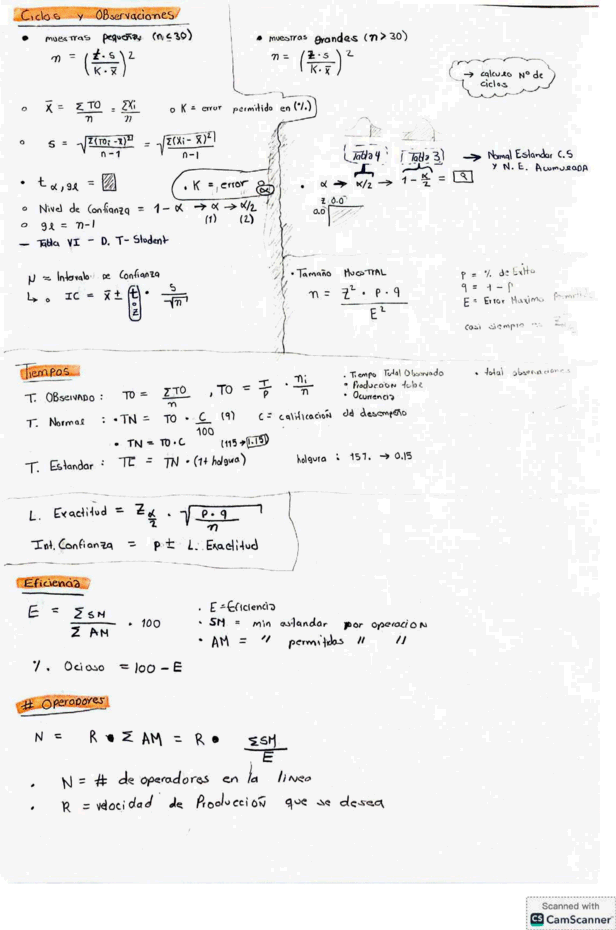 Ciclos y Observaciones
• muestras pequeñas (n ≤ 30)
n = (t · s / K · x̄)²
• muestras grandes (n > 30)
n = (z · s / K · x̄)²
→ calculo N° de ciclos
o x̄ = ΣTO / n = Σxi / n
o K = error permitido en (%)
o S = √(Σ(TOi - x̄)² / n-1) = √(Σ(Xi - x̄)² / n-1)
• t α, gl = ▨
• K = error
o Nivel de Confianza = 1 - α → α → α/2
(1) (2)
o gl = n-1
— Tabla VI - D. T- Student
Tabla 4 Tabla 3 → Normal Estandar C.S y N. E. Acumulada
• α → α/2 → 1 - α/2 = 9
z 0.0
0.0
N = Intervalo de Confianza
↳ o IC = x̄ ± (t o z) · S / √n
• Tamaño Muestral
n = Z² · P · q / E²
P = % de Exito
q = 1 - P
E = Error Maximo
casi siempre
Tiempos
T. Observado : TO = ΣTO / n , TO = T / P · ni / n
· Tiempo Total Observado
· Produccion total
· Ocurrencia
• total observaciones
T. Normal : • TN = TO · C / 100 (9) C = calificación del desempeño
• TN = TO · C (115 → 1.15)
T. Estandar : TE = TN · (1 + holgura) holgura : 15% → 0.15
L. Exactitud = Z α/2 · √(P · q / n)
Int. Confianza = p ± L. Exactitud
Eficiencia
E = ΣSM / ΣAM · 100
. E = Eficiencia
· SM = min estandar por operacion
· AM = " permitidos " "
% Ocioso = 100 - E
# Operadores
N = R • Σ AM = R • ΣSM / E
• N = # de operadores en la linea
• R = velocidad de Producción que se desea
Scanned with
CS CamScanner